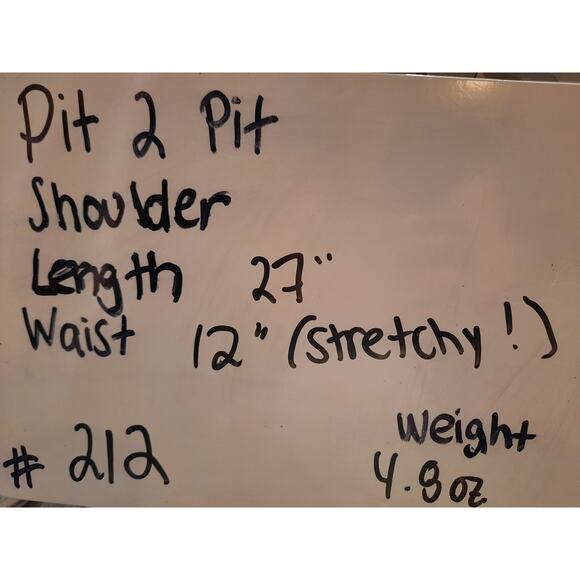 Pit 2 Pit
Shoulder
Length 27"
Waist 12" (stretchy!)
# 212
weight
4.9 oz